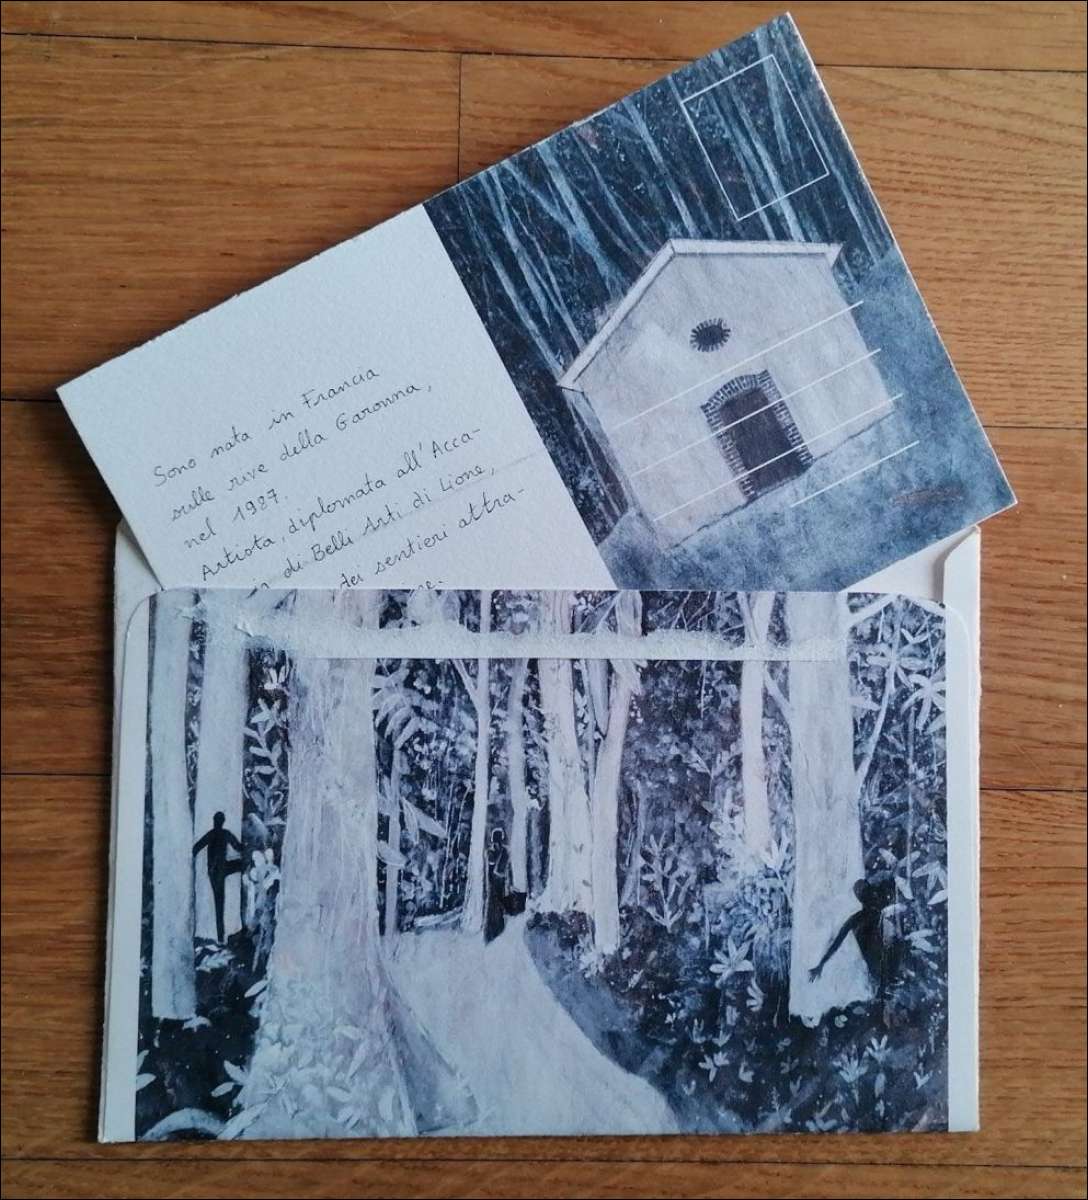 Sono nata in Francia
sulle rive della Garonna,
nel 1987.
Artista, diplomata all'Acca-
di Belli Arti di Lione,
dei sentieri attra-